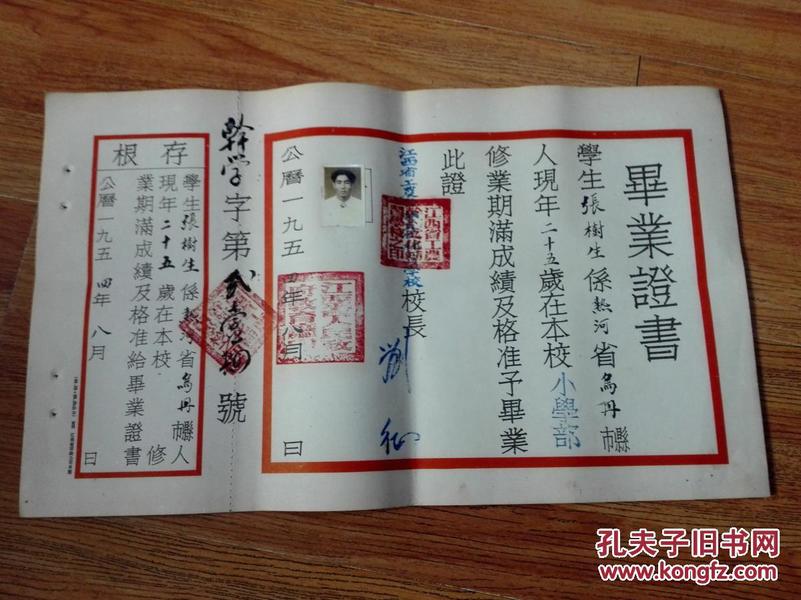 畢業證書
學生張樹生係熱河省烏丹縣市
人現年二十五歲在本校小學部
修業期滿成績及格准予畢業
此證
校長
公曆一九五四年八月 日
幹學字第 號
存根
學生張樹生係熱河省烏丹縣市人
現年二十五歲在本校 修
業期滿成績及格准給畢業證書
公曆一九五四年八月 日
孔夫子旧书网
www.kongfz.com